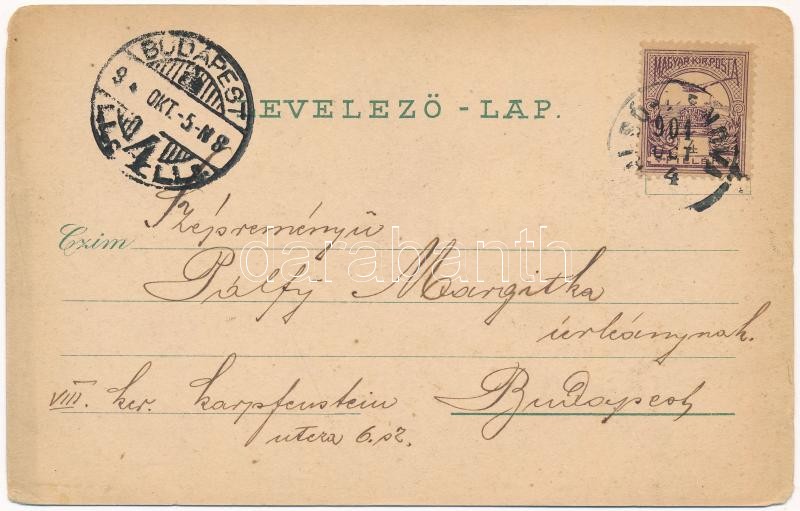 BUDAPEST
9 * OKT.-5.-N8
LEVELEZÖ - LAP.
MAGYAR KIR. POSTA
901
OKT
4
Czim
Szépreményü
Pálfy Margitka
úrleánynak.
VIII. ker. Karpfenstein
Budapest
utcza 6. sz.
darabanth